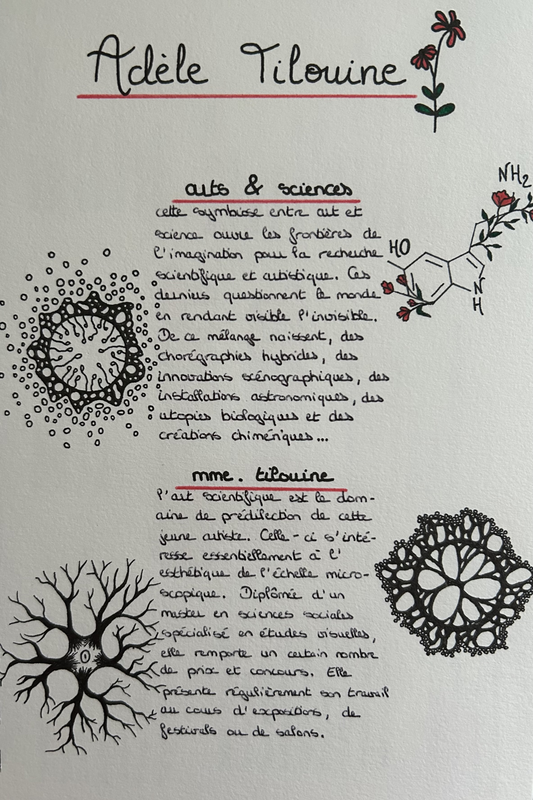 Adèle Tilouine
arts & sciences
cette symbiose entre art et
science ouvre les frontières de
l'imagination pour la recherche
scientifique et artistique. Ces
derniers questionnent le monde
en rendant visible l'invisible.
De ce mélange naissent, des
chorégraphies hybrides, des
innovations scénographiques, des
installations astronomiques, des
utopies biologiques et des
créations chimériques...
NH2
HO
N
H
mme. tilouine
l'art scientifique est le dom-
aine de prédilection de cette
jeune artiste. Celle-ci s'inté-
resse essentiellement à l'
esthétique de l'échelle micro-
scopique. Diplômée d'un
master en sciences sociales
spécialisé en études visuelles,
elle remporte un certain nombre
de prix et concours. Elle
présente régulièrement son travail
au cours d'expositions, de
festivals ou de salons.